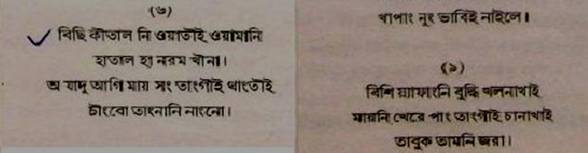 (৬)
বিছি কীতাল নি ওয়াতৗই ওয়ামানি
হাতাল হা নরম খীনা।
অ যাদু আগি মায় সাং তাংগীই থাংতৗই
চীংবো তাংনানি নাংনো।
খাপাং নুং ভাবিই নাইদে।
(৯)
বিশি য়াফাংনি বুদ্ধি খলনাখাই
মায়নি খেরে পাং তাংগীই চানাখাই
তাবুক তামনি জরা।